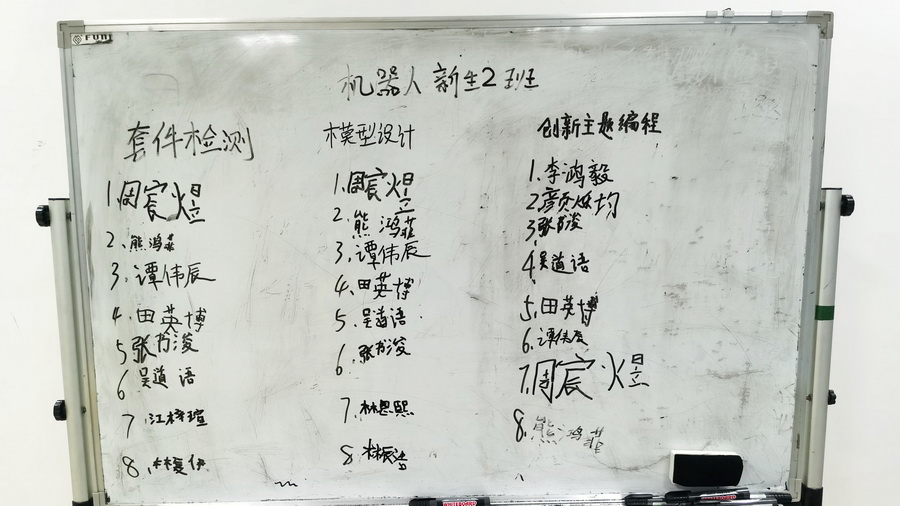 机器人新生2班
套件检测
1.周宸煜
2、熊鸿菲
3、谭伟辰
4、田英博
5 张书浚
6 吴道语
7、江梓瑄
8、林
模型设计
1.周宸煜
2.熊鸿菲
3、谭伟辰
4、田英博
5、吴道语
6.张书浚
7、林思熙
8 林
创新主题编程
1.李鸿毅
2.颜 均
3 张书浚
4 吴道语
5.田英博
6.谭伟辰
7.周宸煜
8.熊鸿菲